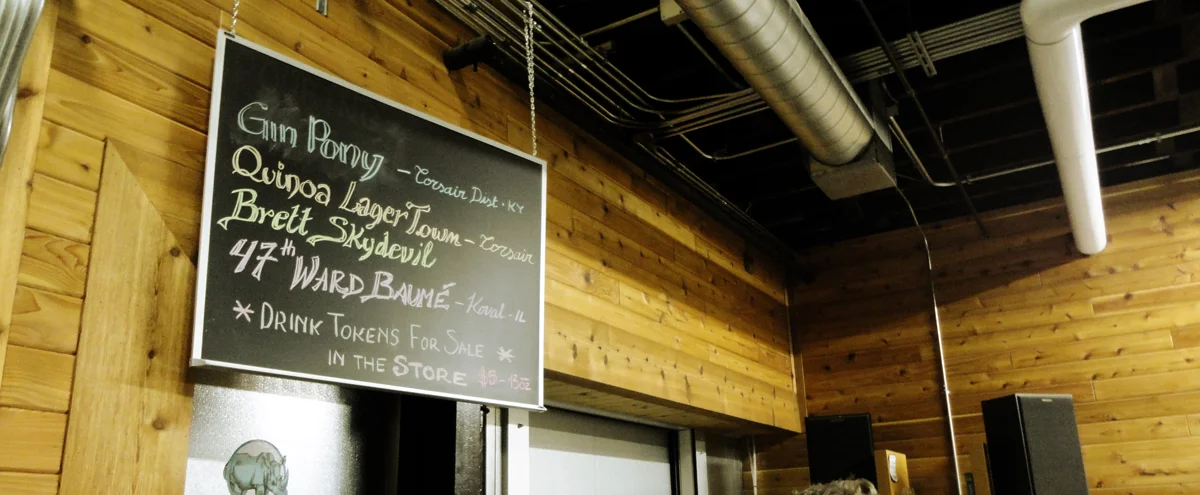 Gin Pony - Corsair Dist. KY
Quinoa Lager Town - Corsair
Brett Skydevil
47th WARD BAUMÉ - Koval - IL
* DRINK TOKENS FOR SALE *
IN THE STORE $5 -